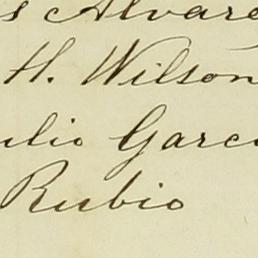 s Alvare
H. Wilson
ulio Garci
Rubio